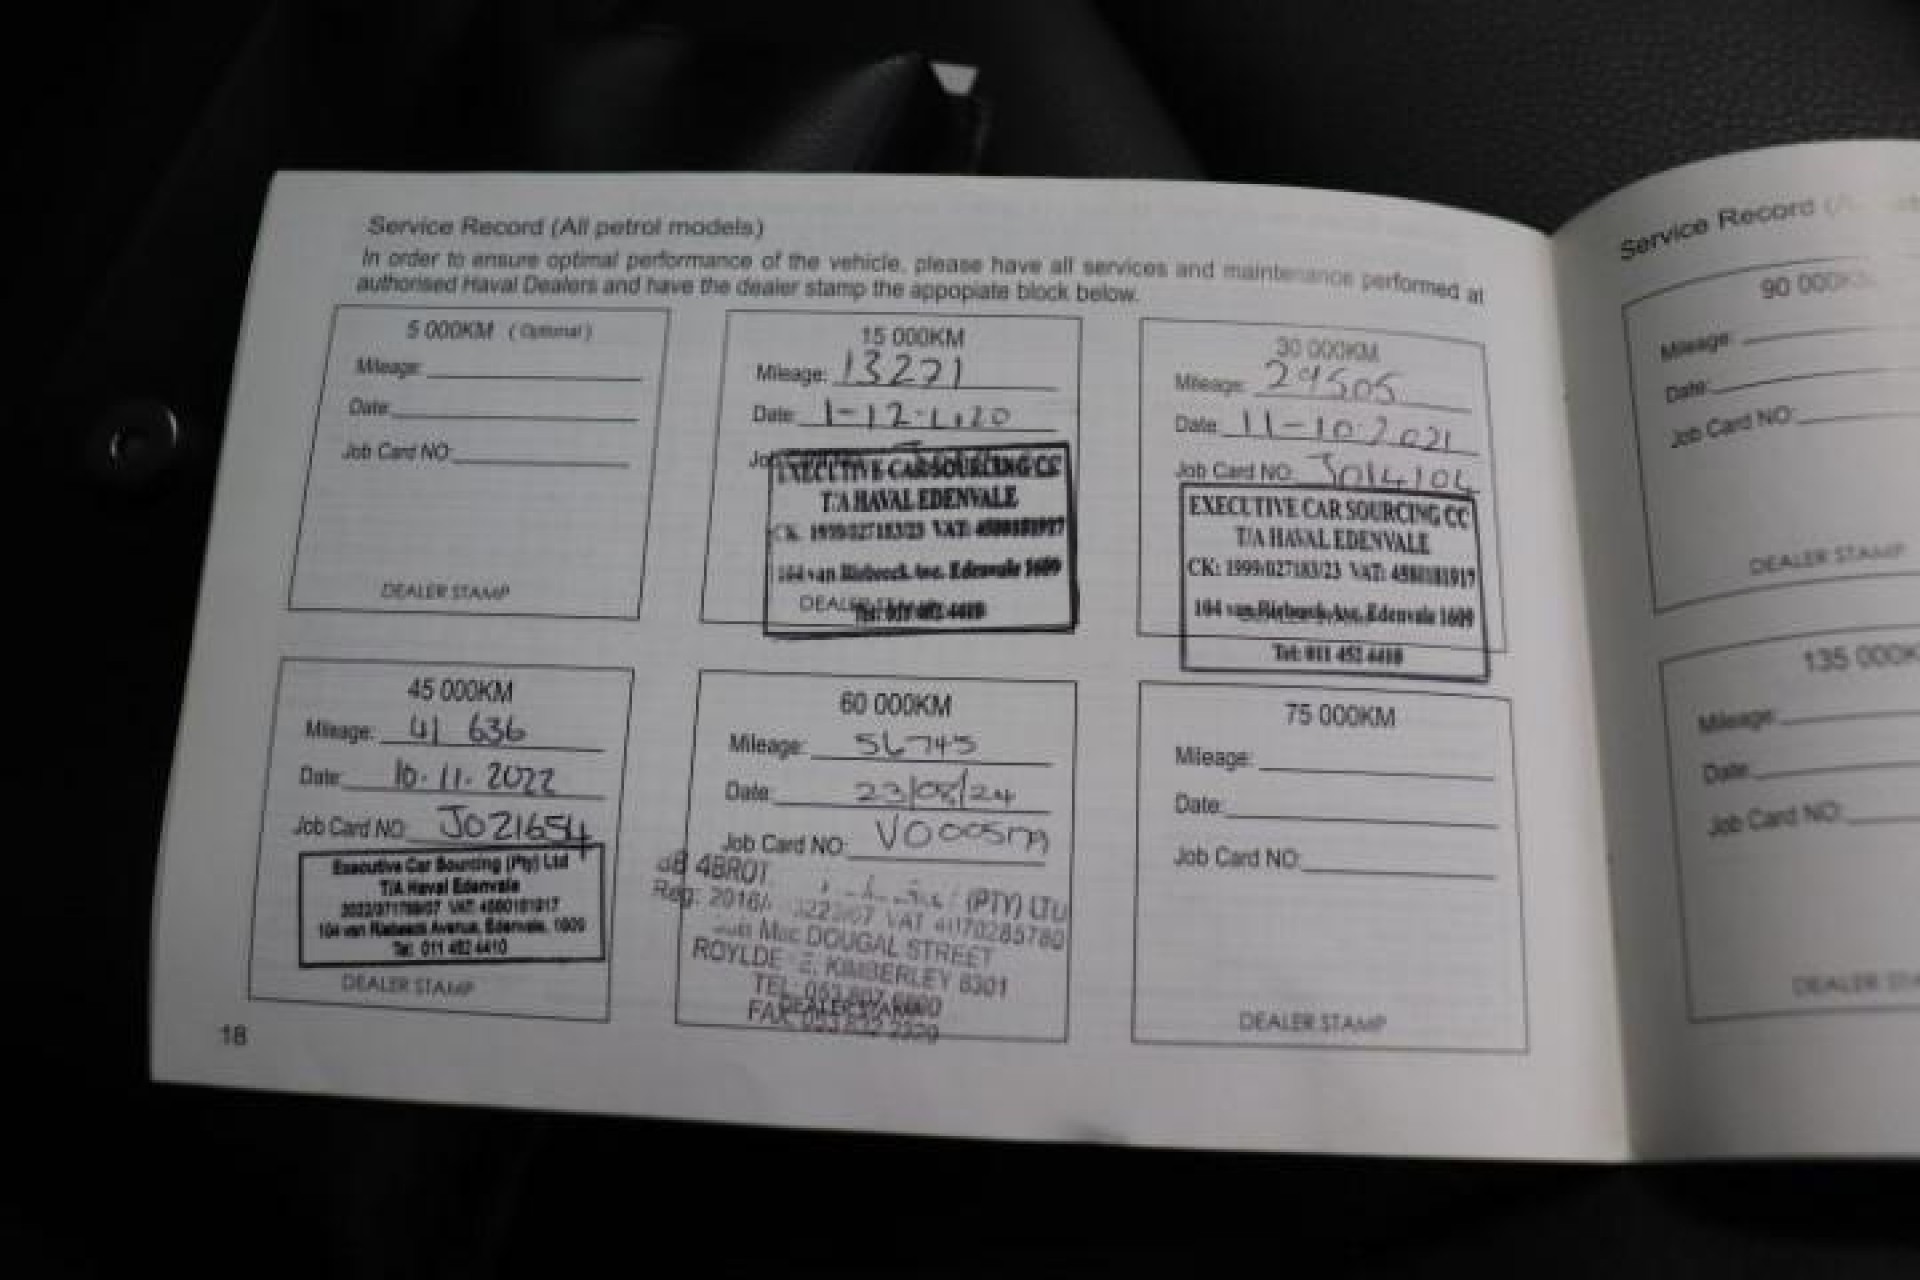 Service Record (All petrol models)
In order to ensure optimal performance of the vehicle, please have all services and maintenance performed at
authorised Haval Dealers and have the dealer stamp the appopiate block below.
5 000KM (Optimal)
Mileage:
Date:
Job Card NO:
DEALER STAMP
15 000KM
Mileage: 13271
Date: 1-12-
EXECUTIVE CAR SOURCING CC
T/A HAVAL EDENVALE
CK: 1999/027183/23 VAT: 4580181917
104 van Riebeeck Ave. Edenvale 1609
DEALER STAMP
Tel: 011 452 4410
30 000KM
Mileage: 29505
Date: 11-10-2021
Job Card NO: J014104
EXECUTIVE CAR SOURCING CC
T/A HAVAL EDENVALE
CK: 1999/027183/23 VAT: 4580181917
104 van Riebeeck Ave. Edenvale 1609
Tel: 011 452 4410
45 000KM
Mileage: 41 636
Date: 10.11.2022
Job Card NO: J021654
Executive Car Sourcing (Pty) Ltd
T/A Haval Edenvale
VAT 4580181917
104 van Riebeeck Avenue, Edenvale, 1609
Tel: 011 452 4410
DEALER STAMP
60 000KM
Mileage: 56745
Date: 23/08/24
Job Card NO:
4BROT (PTY) LTD
Reg: 2016/ VAT 4070285780
Mac DOUGAL STREET
KIMBERLEY 8301
TEL: 053 807
DEALER STAMP
FAX: 053 832
75 000KM
Mileage:
Date:
Job Card NO:
DEALER STAMP
18
Service Record
90 000KM
Mileage:
Date:
Job Card NO:
DEALER STAMP
135 000K
Mileage:
Date:
Job Card NO:
DEALER STA